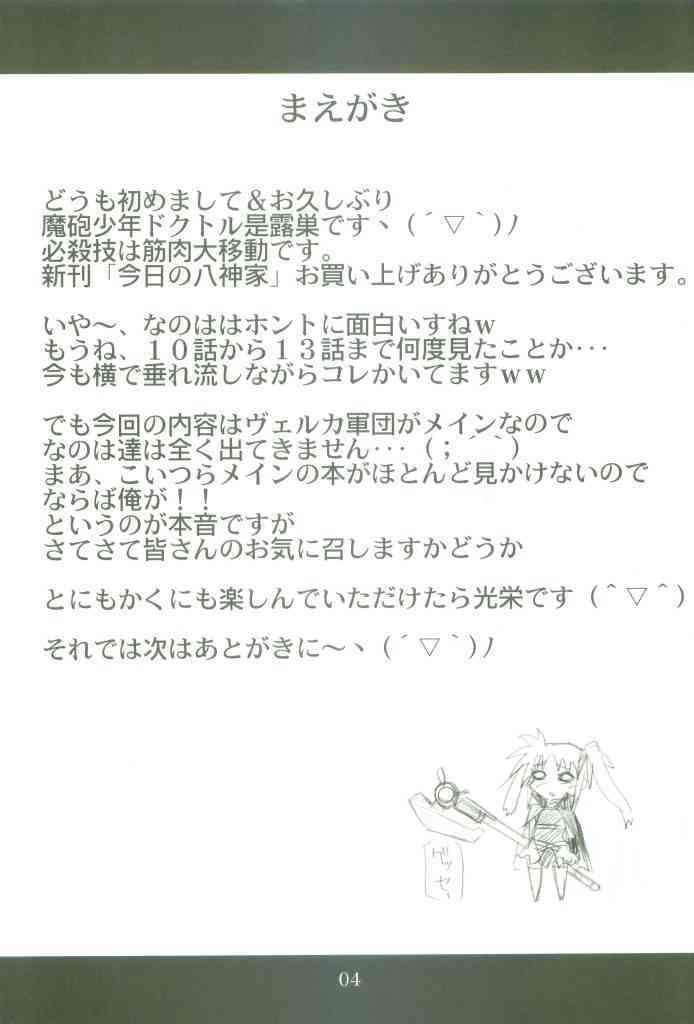 まえがき
どうも初めまして＆お久しぶり
魔砲少年ドクトル是露巣ですヽ(´▽｀)ﾉ
必殺技は筋肉大移動です。
新刊「今日の八神家」お買い上げありがとうございます。
いや～、なのははホントに面白いすねｗ
もうね、１０話から１３話まで何度見たことか･･･
今も横で垂れ流しながらコレかいてますｗｗ
でも今回の内容はヴェルカ軍団がメインなので
なのは達は全く出てきません･･･（；´｀）
まあ、こいつらメインの本がほとんど見かけないので
ならば俺が！！
というのが本音ですが
さてさて皆さんのお気に召しますかどうか
とにもかくにも楽しんでいただけたら光栄です（＾▽＾）
それでは次はあとがきに～ヽ(´▽｀)ﾉ
ゲッセー
04